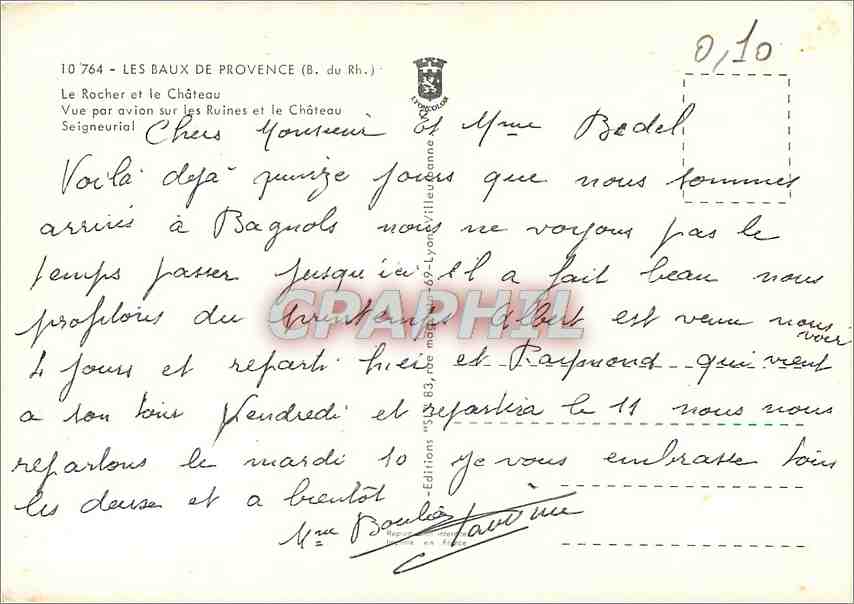 0,10
10 764 - LES BAUX DE PROVENCE (B. du Rh.)
Le Rocher et le Château
Vue par avion sur les Ruines et le Château
Seigneurial
LYONCOLOR
Chers Monsieur et Mme Bedel
Voilà dejà quinze jours que nous sommes
arrivés à Bagnols nous ne voyons pas le
temps passer jusqu'ici il a fait beau nous
profitons du printemps Albert est venu nous
voir
4 jours et reparti hier et Raymond qui vient
a son tour Vendredi et repartira le 11 nous nous
repartons le mardi 10 je vous embrasse tous
les deux et a bientôt
Mme
Editions 83, rue 69-Lyon-Villeurbanne
Imprimé en France
CPAPHIL